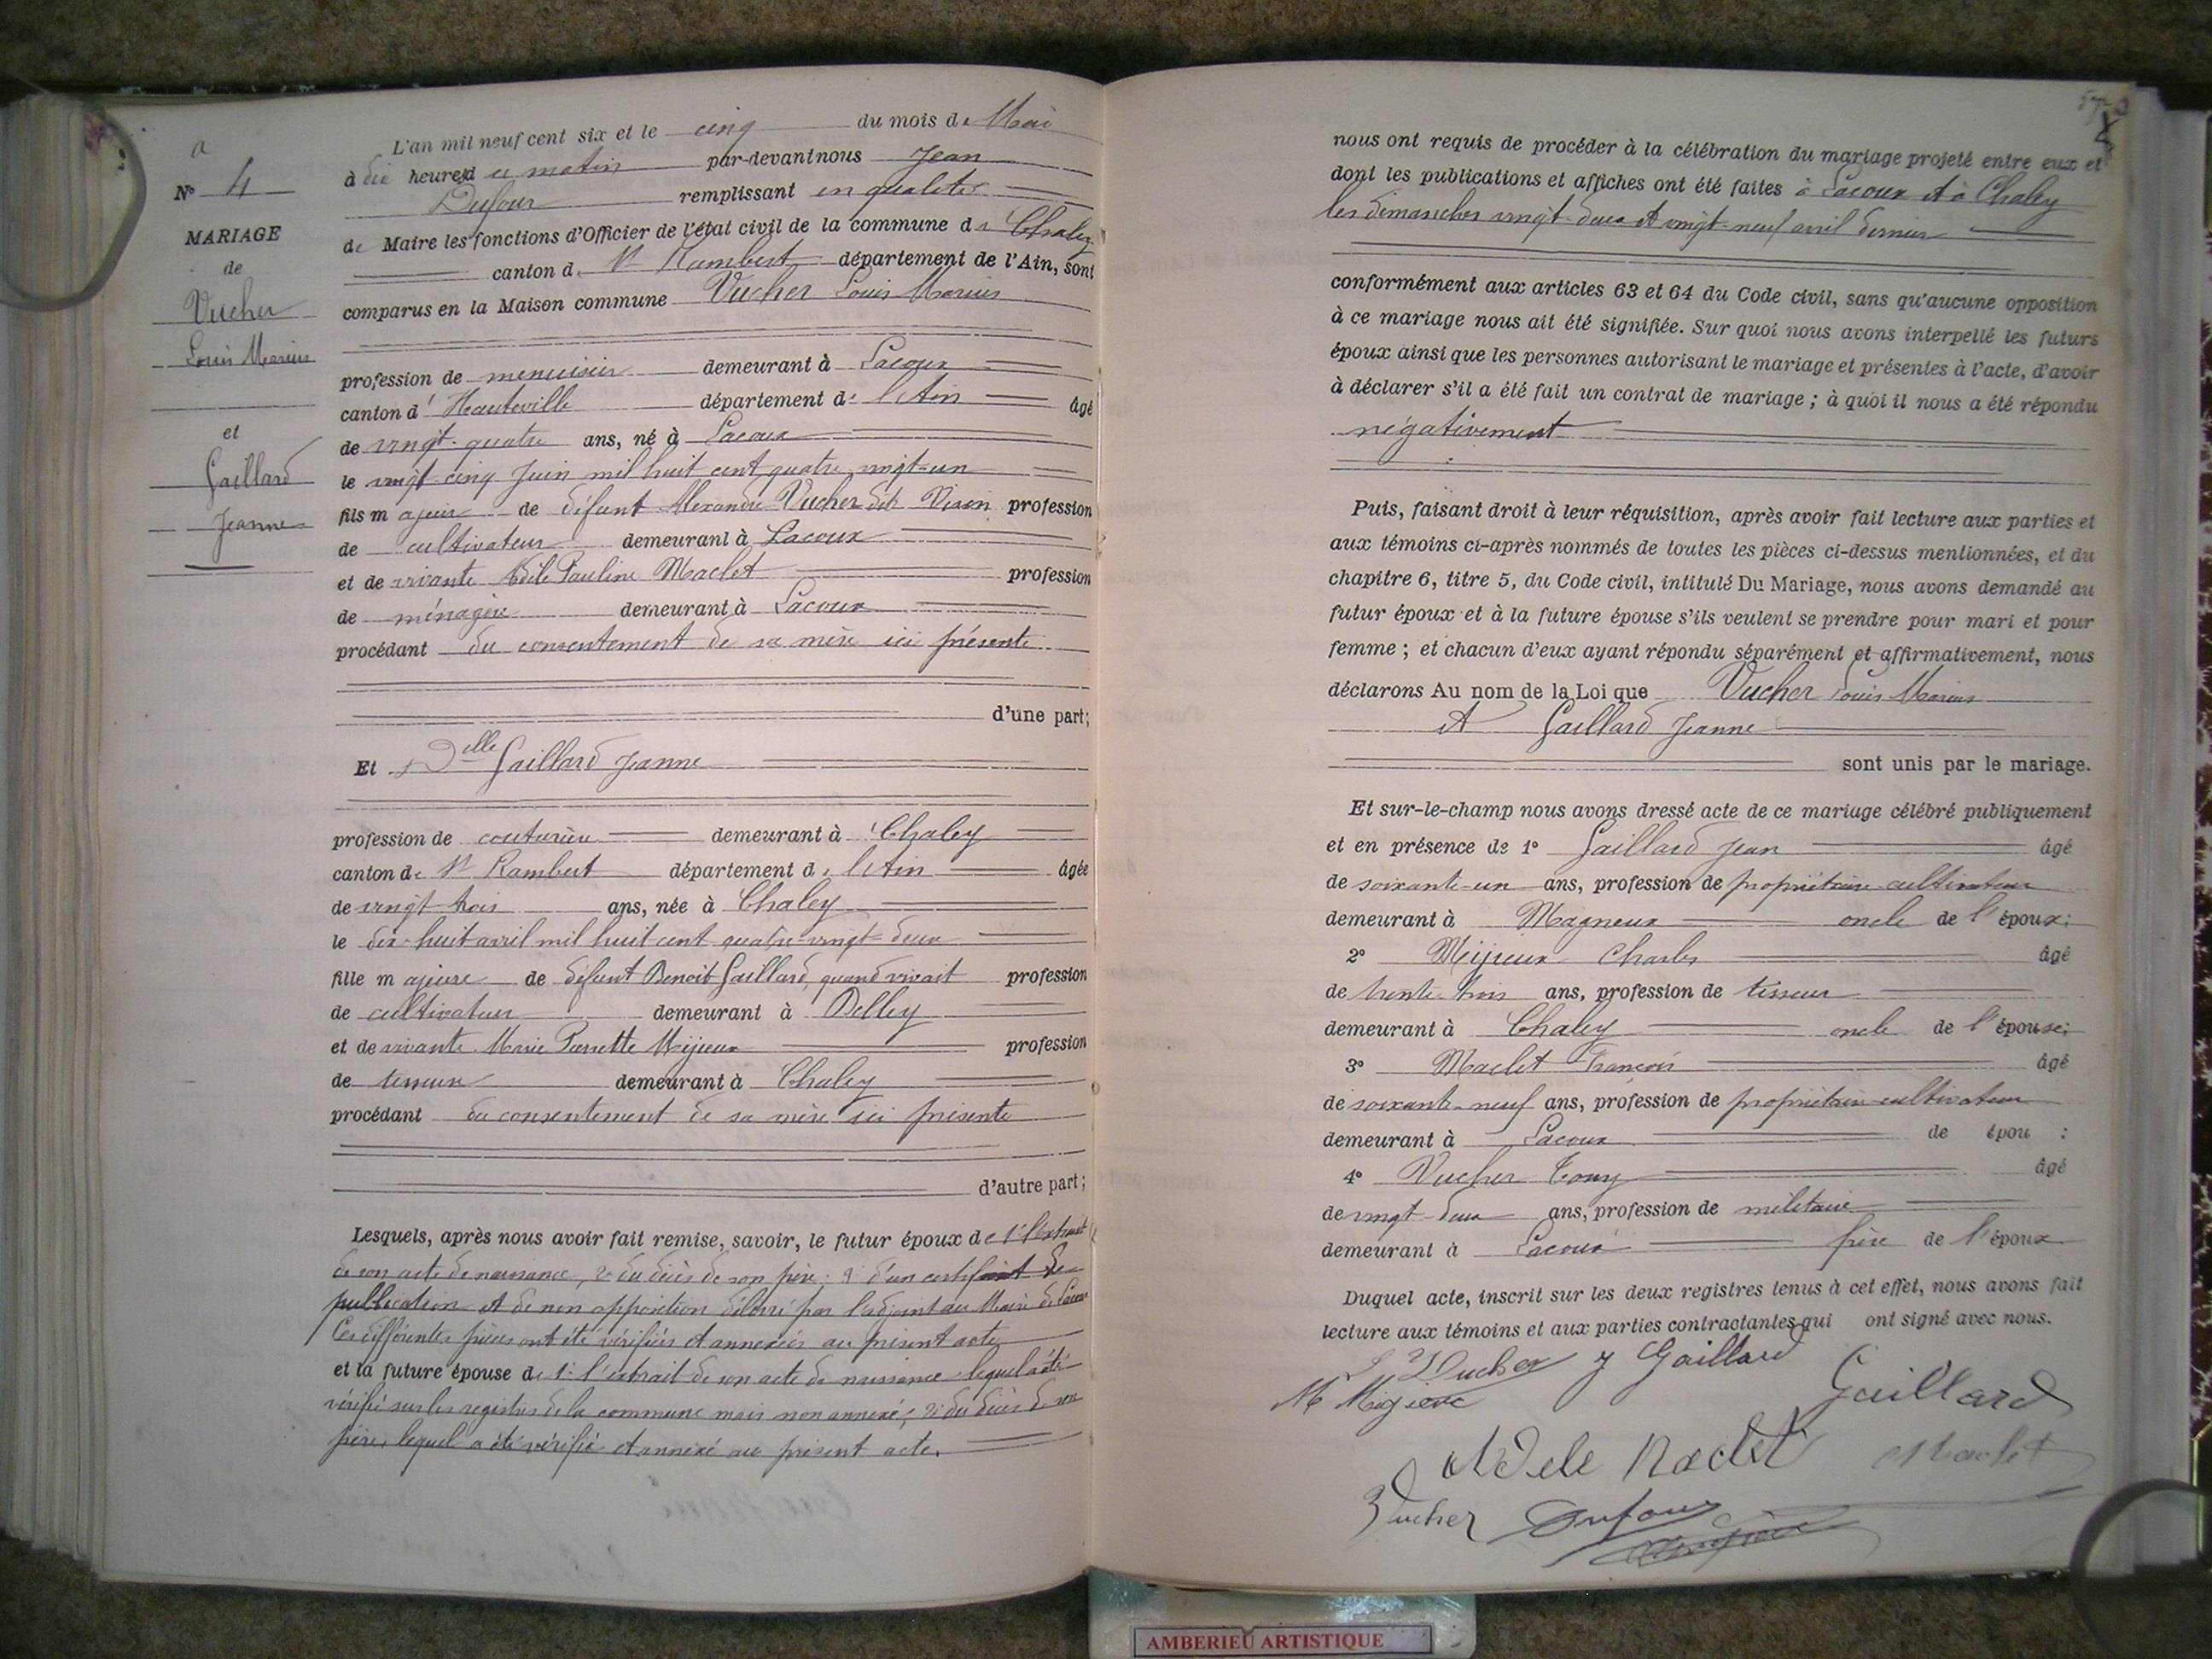 a
N° 4
MARIAGE
de
Vucher
Louis Marius
et
Gaillard
Jeanne
L'an mil neuf cent six et le cinq du mois de Mai
à dix heures du matin par-devant nous Jean
Dufour remplissant en qualité
de Maire les fonctions d'Officier de l'état civil de la commune de Chaley
canton de St Rambert département de l'Ain, sont
comparus en la Maison commune Vucher Louis Marius
profession de menuisier demeurant à Lacoux
canton d' Hauteville département de l'Ain âgé
de vingt-quatre ans, né à Lacoux
le vingt-cinq Juin mil huit cent quatre vingt-un
fils majeur de défunt Alexandre Vucher dit profession
de cultivateur demeurant à Lacoux
et de vivante Adèle Pauline Maclet profession
de ménagère demeurant à Lacoux
procédant du consentement de sa mère ici présente
d'une part;
Et Delle Gaillard Jeanne
profession de couturière demeurant à Chaley
canton de St Rambert département de l'Ain âgée
de vingt-trois ans, née à Chaley
le dix-huit avril mil huit cent quatre-vingt-deux
fille majeure de défunt Benoit Gaillard, quand vivait profession
de cultivateur demeurant à
et de vivante Marie Pierrette Mijieux profession
de tisseuse demeurant à Chaley
procédant du consentement de sa mère ici présente
d'autre part;
Lesquels, après nous avoir fait remise, savoir, le futur époux de 1° l'extrait
de son acte de naissance, 2° du décès de son père; d'un certificat de
publication et de non opposition délivré par l'adjoint au Maire de Lacoux
Ces différentes pièces ont été vérifiées et annexées au présent acte
et la future épouse de 1° l'extrait de son acte de naissance lequel a été
vérifié sur les registres de la commune mais non annexé; 2° du décès de son
père, lequel a été vérifié et annexé au présent acte.
nous ont requis de procéder à la célébration du mariage projeté entre eux et
dont les publications et affiches ont été faites à Lacoux et à Chaley
les dimanches vingt-deux et vingt-neuf avril dernier
conformément aux articles 63 et 64 du Code civil, sans qu'aucune opposition
à ce mariage nous ait été signifiée. Sur quoi nous avons interpellé les futurs
époux ainsi que les personnes autorisant le mariage et présentes à l'acte, d'avoir
à déclarer s'il a été fait un contrat de mariage; à quoi il nous a été répondu
négativement
Puis, faisant droit à leur réquisition, après avoir fait lecture aux parties et
aux témoins ci-après nommés de toutes les pièces ci-dessus mentionnées, et du
chapitre 6, titre 5, du Code civil, intitulé Du Mariage, nous avons demandé au
futur époux et à la future épouse s'ils veulent se prendre pour mari et pour
femme; et chacun d'eux ayant répondu séparément et affirmativement, nous
déclarons Au nom de la Loi que Vucher Louis Marius
et Gaillard Jeanne
sont unis par le mariage.
Et sur-le-champ nous avons dressé acte de ce mariage célébré publiquement
et en présence de 1° Gaillard Jean âgé
de soixante-un ans, profession de propriétaire cultivateur
demeurant à Magneux oncle de l'époux;
2° Mijieux Charles âgé
de trente-trois ans, profession de tisseur
demeurant à Chaley oncle de l'épouse;
3° Maclet François âgé
de soixante-neuf ans, profession de propriétaire cultivateur
demeurant à Lacoux de épou :
4° Vucher Tony âgé
de vingt-deux ans, profession de militaire
demeurant à Lacoux frère de l'époux
Duquel acte, inscrit sur les deux registres tenus à cet effet, nous avons fait
lecture aux témoins et aux parties contractantes qui ont signé avec nous.
L Vucher J Gaillard
M Gaillard
Adele Maclet Maclet
Vucher Dufour
AMBERIEU ARTISTIQUE